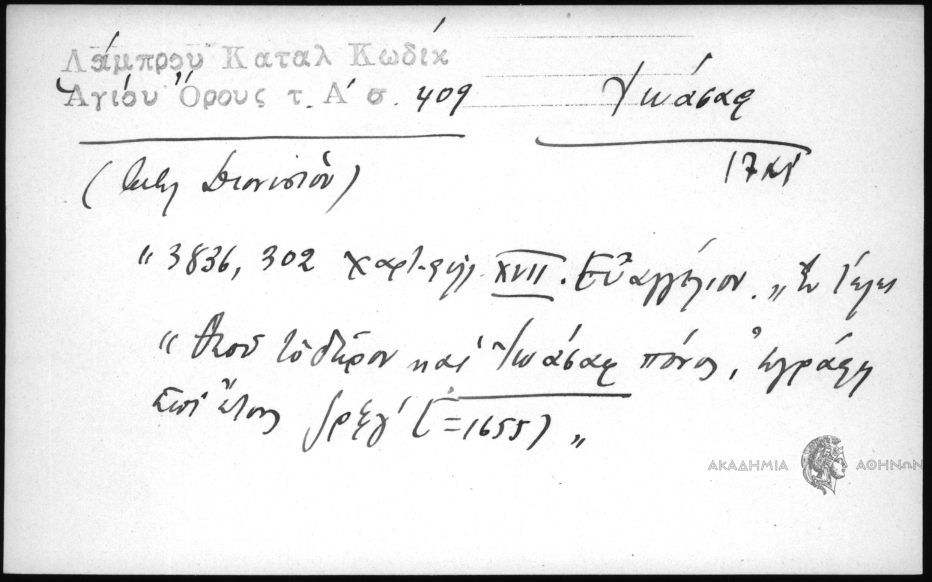 Λάμπρου Καταλ Κωδίκ
Ἁγίου Ὄρους τ. Α΄ σ. 409
Ἰωάσαφ
17 αἰ
(Διονυσίου)
" 3836, 302 χαρτ. φυλ. XVII. Εὐαγγέλιον. " Ἐν τέλει
" Θεοῦ τὸ δῶρον καὶ Ἰωάσαφ πόνος, ἐγράφη
ἐπὶ ἔτους ͵ζρξγ΄ (=1655) "
ΑΚΑΔΗΜΙΑ ΑΘΗΝΩΝ